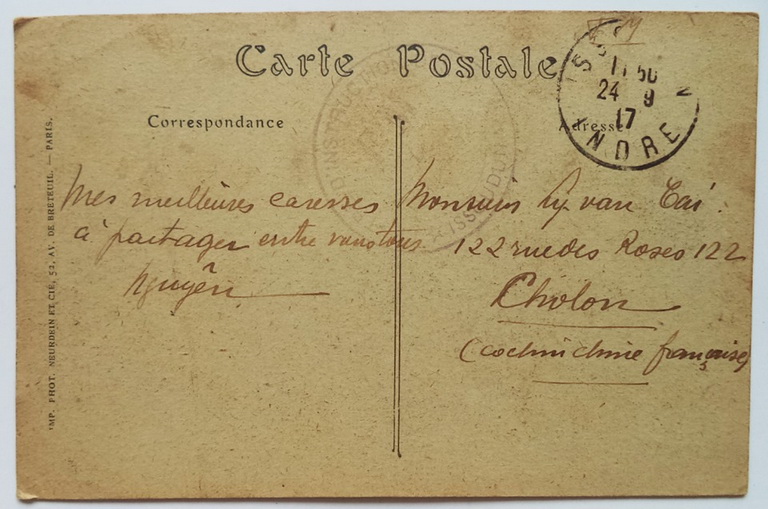 Carte Postale
Correspondance
Adresse
ISSOUDUN
11 50
24 9
17
INDRE
Mes meilleures caresses
à partager entre vous tous
Nguyên
Monsieur Ly van Tai
122 rue des Roses 122
Cholon
(Cochinchine française)
IMP. PHOT. NEURDEIN ET CIE, 52, AV. DE BRETEUIL. — PARIS.